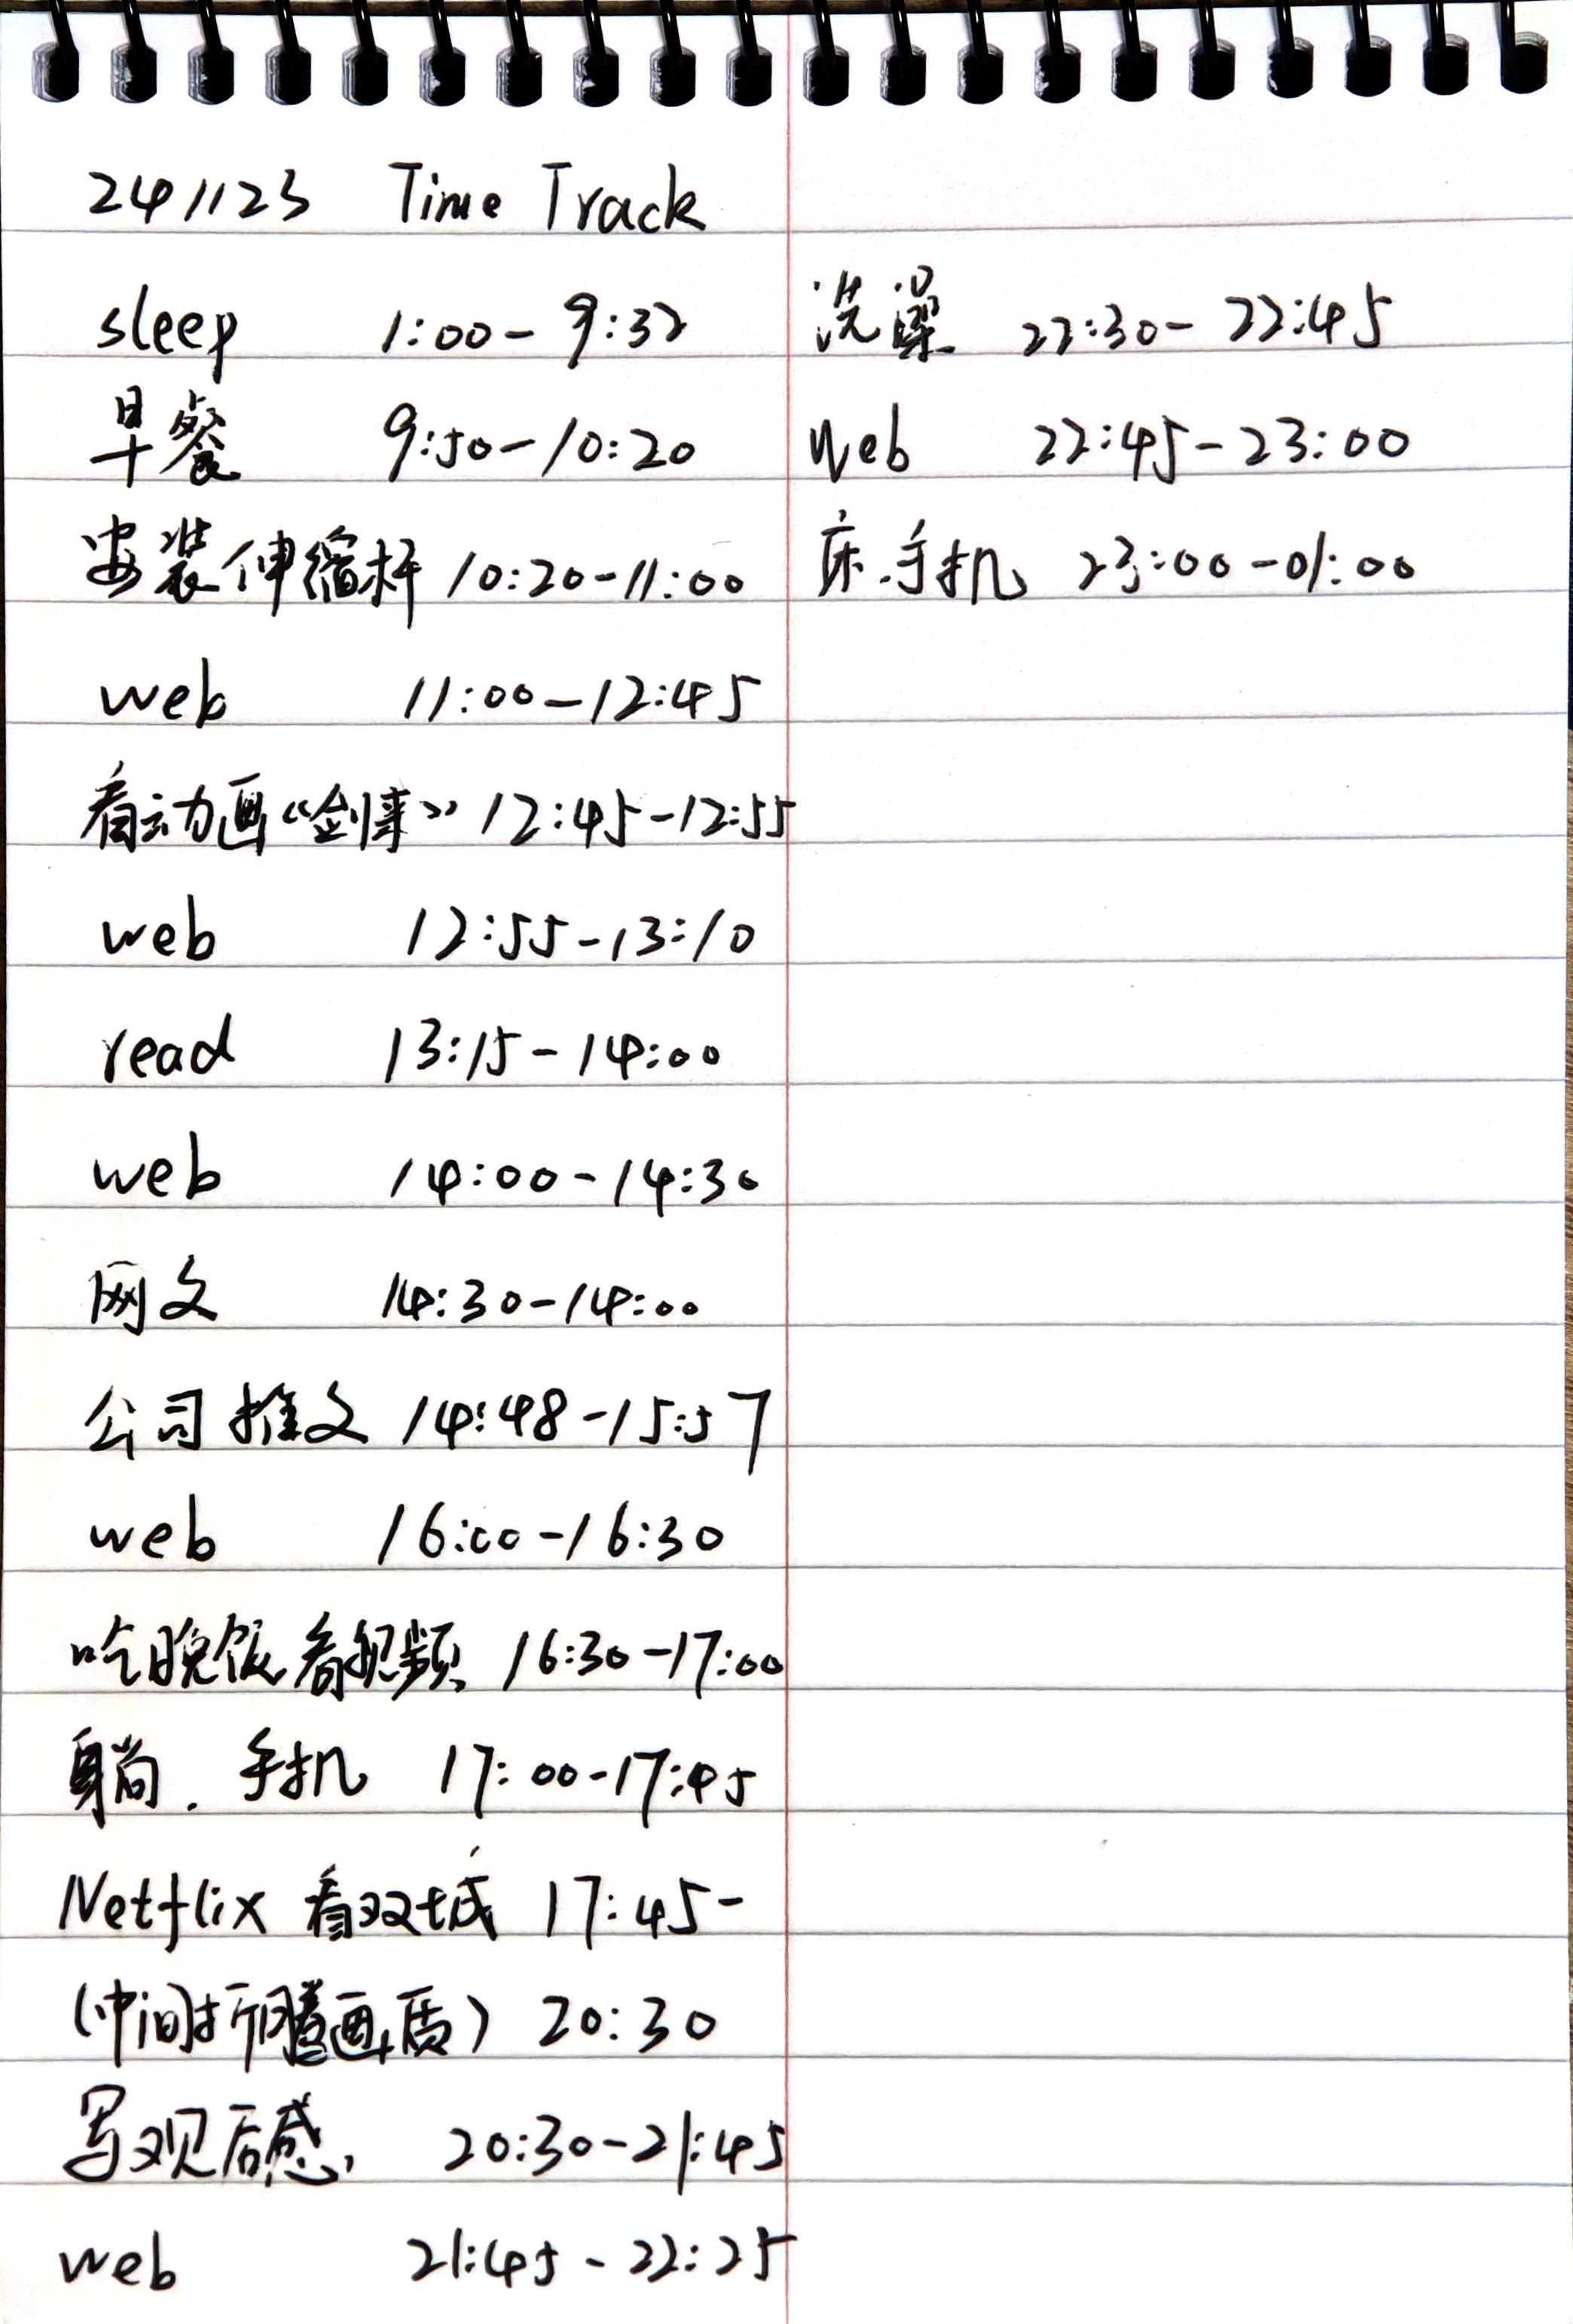 241123 Time Track
sleep 1:00-9:32
早餐 9:50-10:20
安装伸缩杆 10:20-11:00
web 11:00-12:45
看动画《剑来》 12:45-12:55
web 12:55-13:10
read 13:15-14:00
web 14:00-14:30
网文 14:30-14:00
公司推文 14:48-15:57
web 16:00-16:30
吃晚饭看视频 16:30-17:00
躺.手机 17:00-17:45
Netflix 看双城 17:45-
(中间折腾画质) 20:30
写观后感 20:30-21:45
web 21:45-22:25
洗澡 22:30-22:45
Web 22:45-23:00
床.手机 23:00-01:00